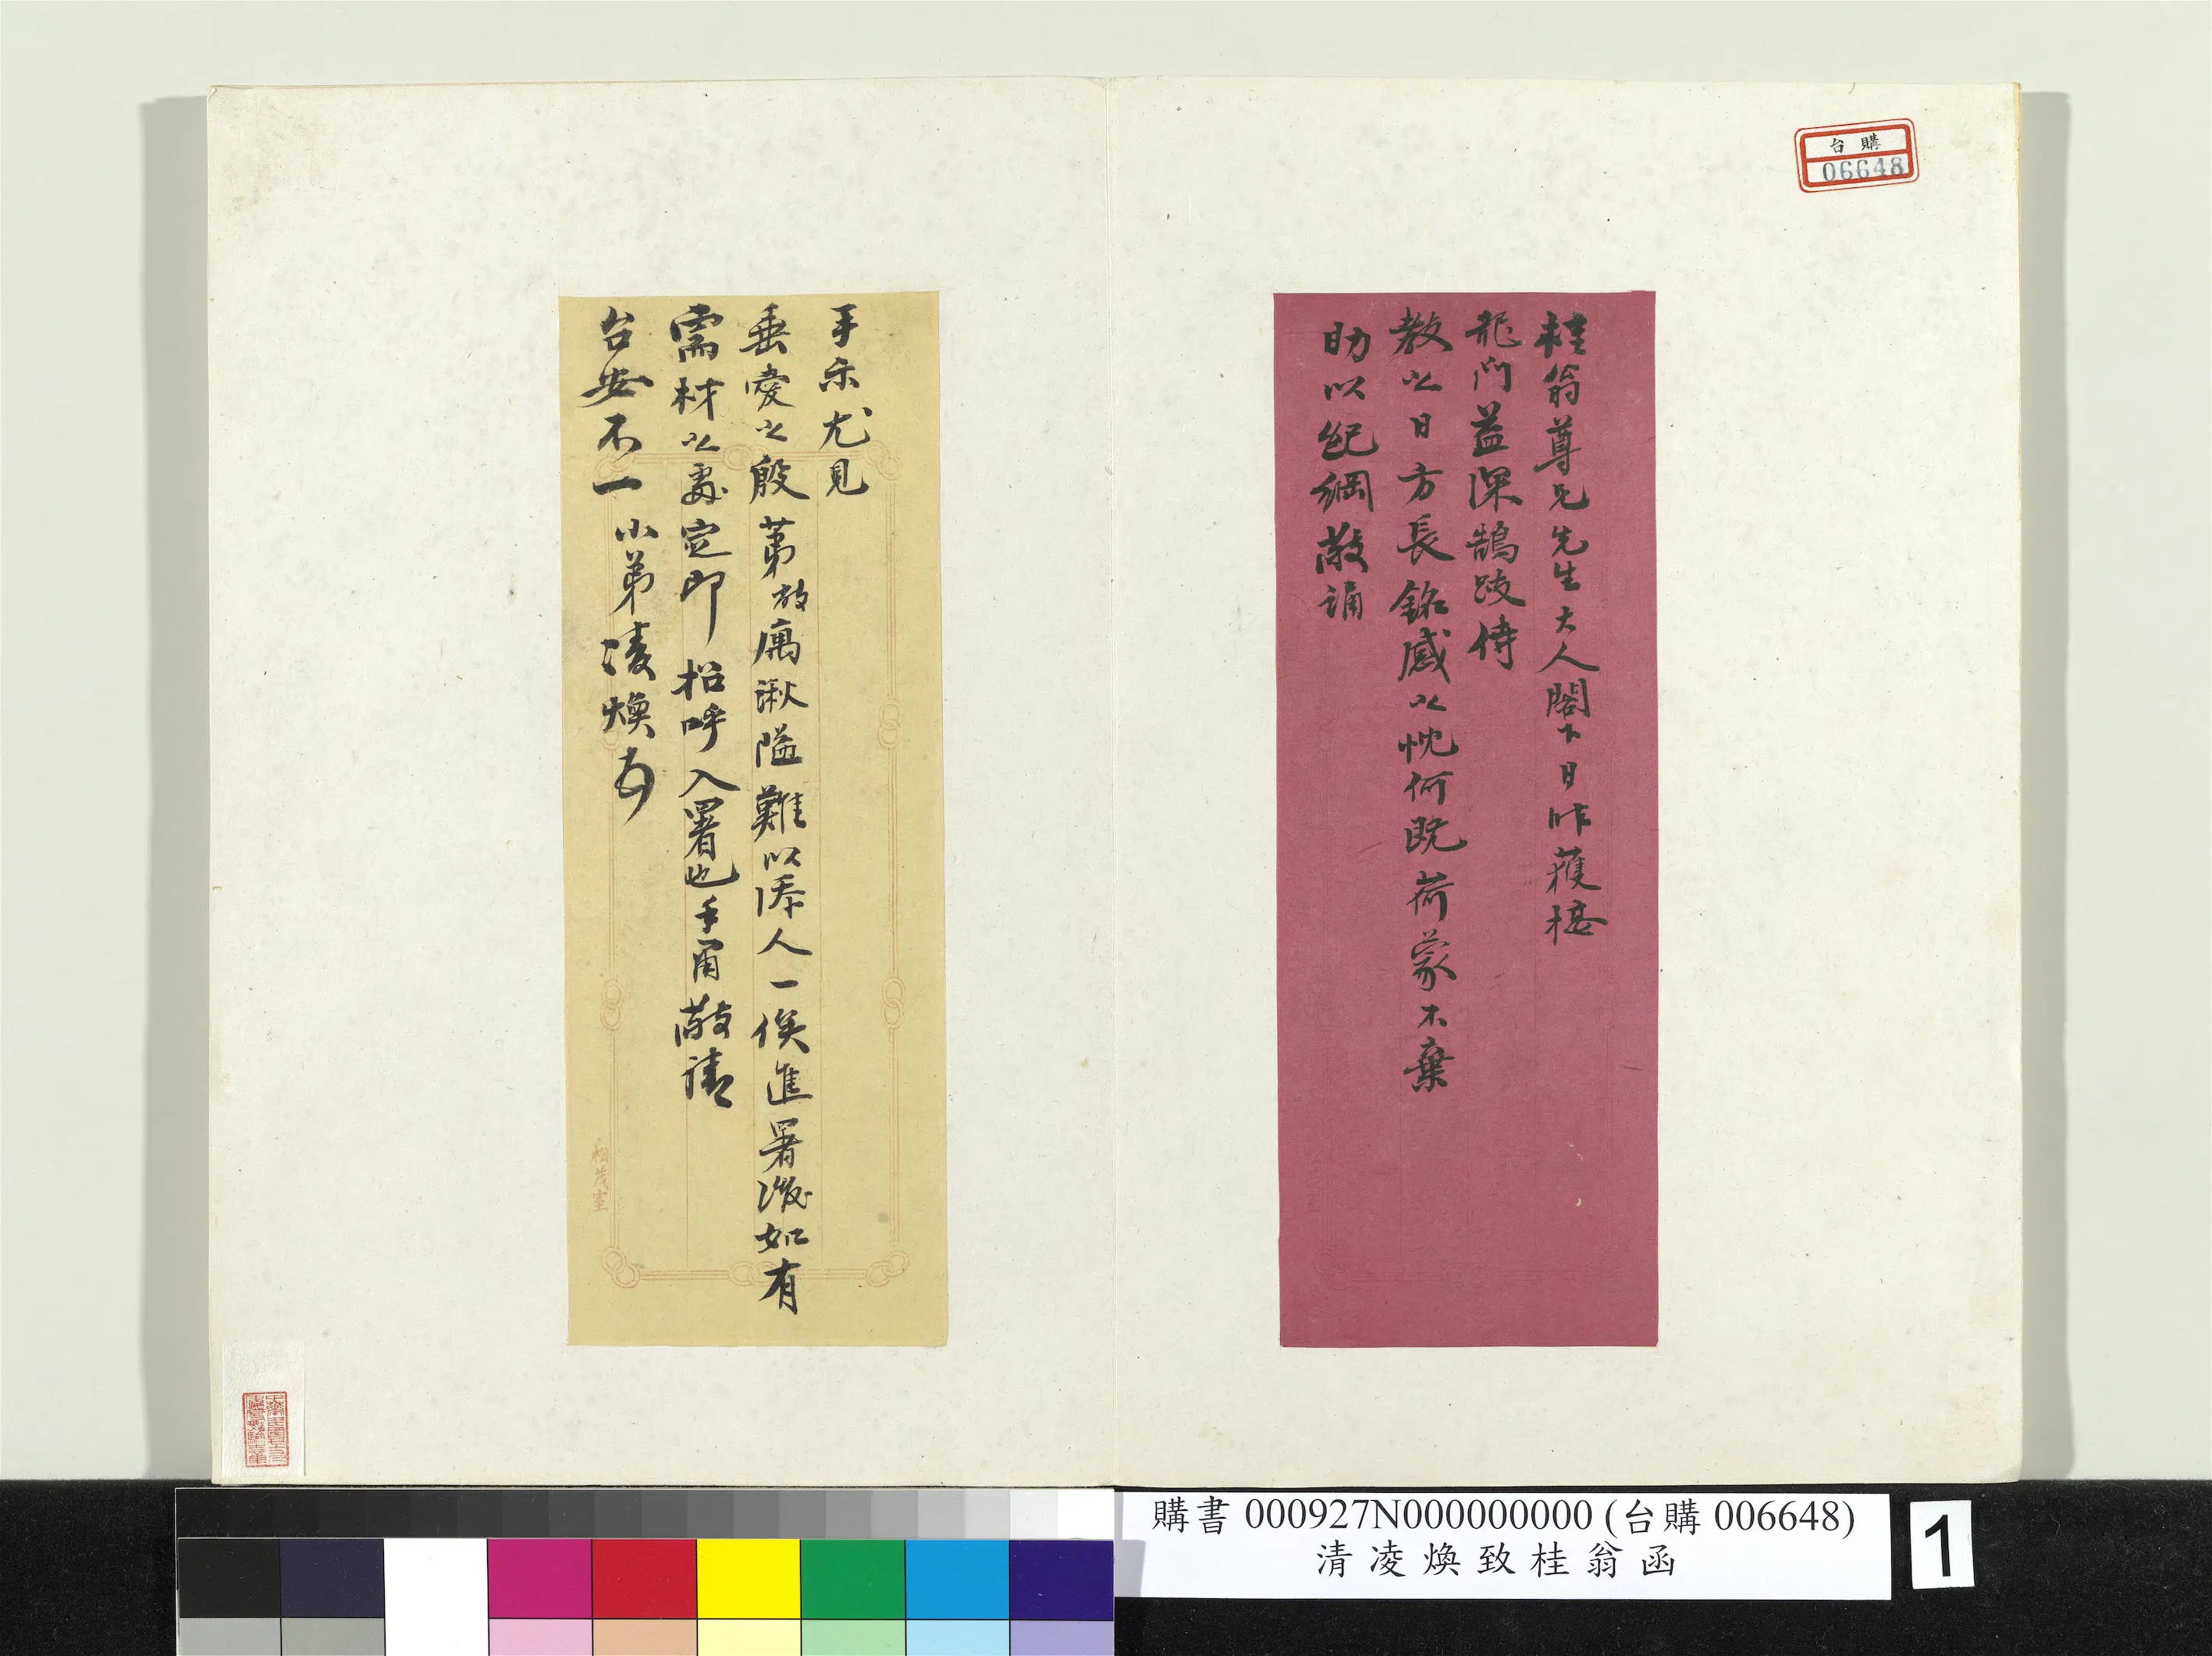 台購
06648
桂翁尊兄先生大人閣下日昨獲榽
龍門益深鵠跂侍
教之日方長銘感之忱何既荷蒙不棄
助以紀綱敬誦
手示尤見
垂愛之殷苐敝寓湫隘難以添人一俟進署後如有
需材之處定即招呼入署也手肅敬請
台安不一
小弟凌煥頓
松茂室
購書 000927N000000000 (台購 006648)
清凌煥致桂翁函
1